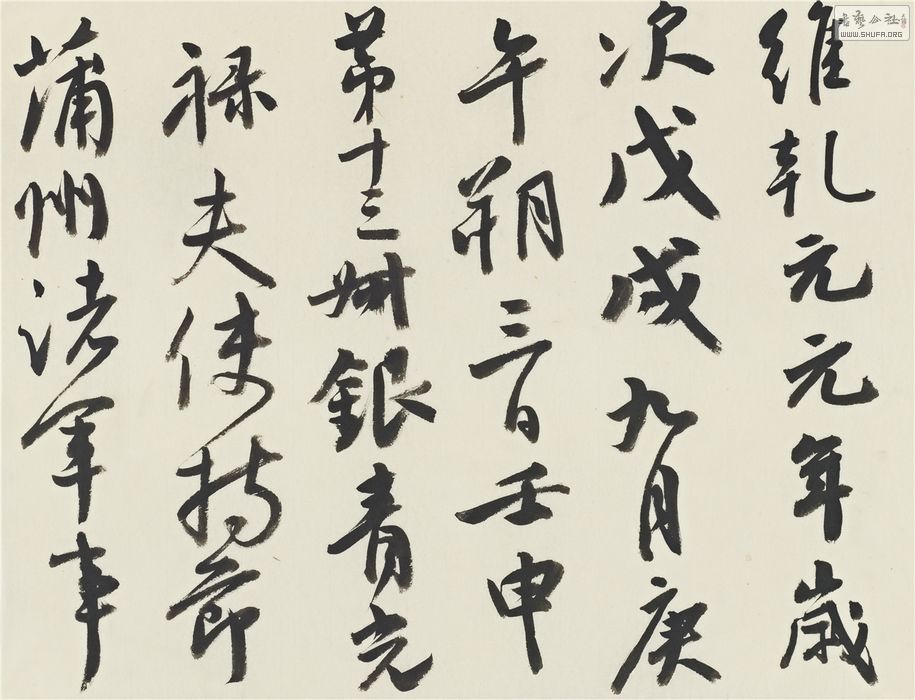 維乾元元年歲
次戊戌九月庚
午朔三日壬申
第十三叔銀青光
祿夫使持節
蒲州諸軍事
書藝公社
WWW.SHUFA.ORG